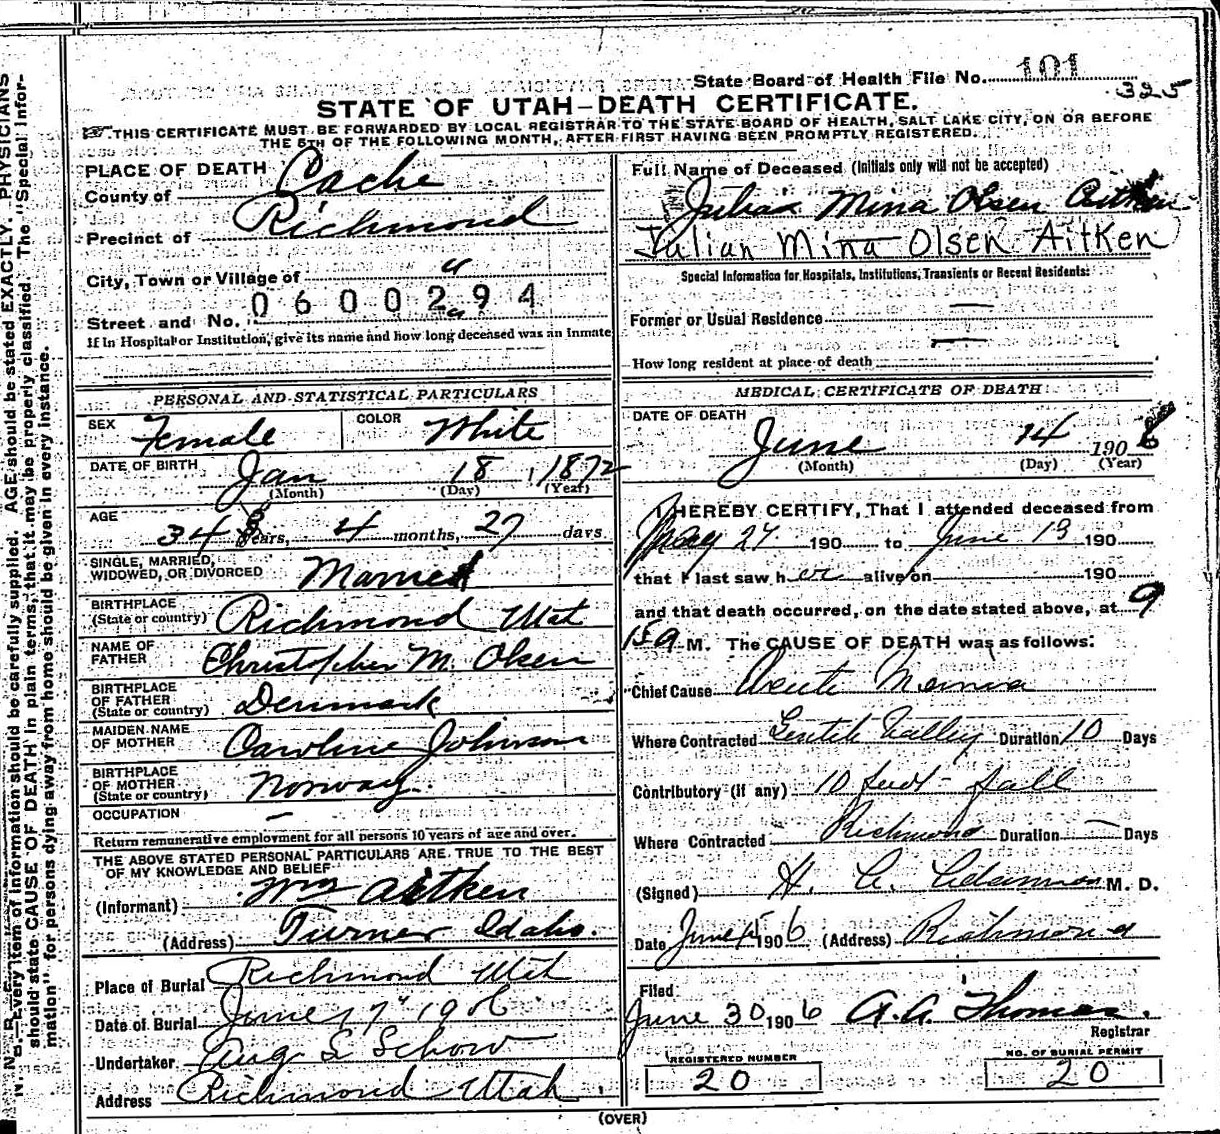 State Board of Health File No. 101
325
STATE OF UTAH—DEATH CERTIFICATE.
THIS CERTIFICATE MUST BE FORWARDED BY LOCAL REGISTRAR TO THE STATE BOARD OF HEALTH, SALT LAKE CITY, ON OR BEFORE
THE 5TH OF THE FOLLOWING MONTH, AFTER FIRST HAVING BEEN PROMPTLY REGISTERED.
PLACE OF DEATH
County of Cache
Precinct of Richmond
City, Town or Village of "
0600294
Street and No. "
If in Hospital or Institution, give its name and how long deceased was an inmate
PERSONAL AND STATISTICAL PARTICULARS
SEX Female COLOR White
DATE OF BIRTH Jan 18, 1872
(Month) (Day) (Year)
AGE 34 years, 4 months, 27 days
SINGLE, MARRIED, WIDOWED, OR DIVORCED Married
BIRTHPLACE (State or country) Richmond Utah
NAME OF FATHER Christopher M. Olsen
BIRTHPLACE OF FATHER (State or country) Denmark
MAIDEN NAME OF MOTHER Caroline Johnson
BIRTHPLACE OF MOTHER (State or country) Norway
OCCUPATION —
Return remunerative employment for all persons 10 years of age and over.
THE ABOVE STATED PERSONAL PARTICULARS ARE TRUE TO THE BEST
OF MY KNOWLEDGE AND BELIEF
(Informant) Wm Aitken
(Address) Turner Idaho.
Place of Burial Richmond Utah
Date of Burial June 17" 1906
Undertaker Aug S Schow
Address Richmond Utah
Full Name of Deceased (Initials only will not be accepted)
Julian Mina Olsen Aitken
Julian Mina Olsen Aitken
Special Information for Hospitals, Institutions, Transients or Recent Residents:
Former or Usual Residence —
How long resident at place of death —
MEDICAL CERTIFICATE OF DEATH
DATE OF DEATH
June 14 1906
(Month) (Day) (Year)
I HEREBY CERTIFY, That I attended deceased from
May 27 190 to June 13 190
that I last saw her alive on 190
and that death occurred, on the date stated above, at 9
15 a M. The CAUSE OF DEATH was as follows:
Chief Cause Acute Mania
Where Contracted Gentile Valley Duration 10 Days
Contributory (if any) 10 foot fall
Where Contracted Richmond Duration — Days
(Signed) H. C. Adamson M. D.
Date June 15 1906 (Address) Richmond
Filed
June 30 1906 A. A. Thomas.
Registrar
REGISTERED NUMBER
20
NO. OF BURIAL PERMIT
20
(OVER)
N. B.—Every item of information should be carefully supplied. AGE should be stated EXACTLY. PHYSICIANS
should state CAUSE OF DEATH in plain terms, that it may be properly classified. The "Special Infor-
mation" for persons dying away from home should be given in every instance.